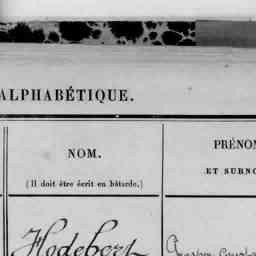 ALPHABÉTIQUE.
NOM.
(Il doit être écrit en bâtarde.)
PRÉNO
ET SURNO
Hodebert